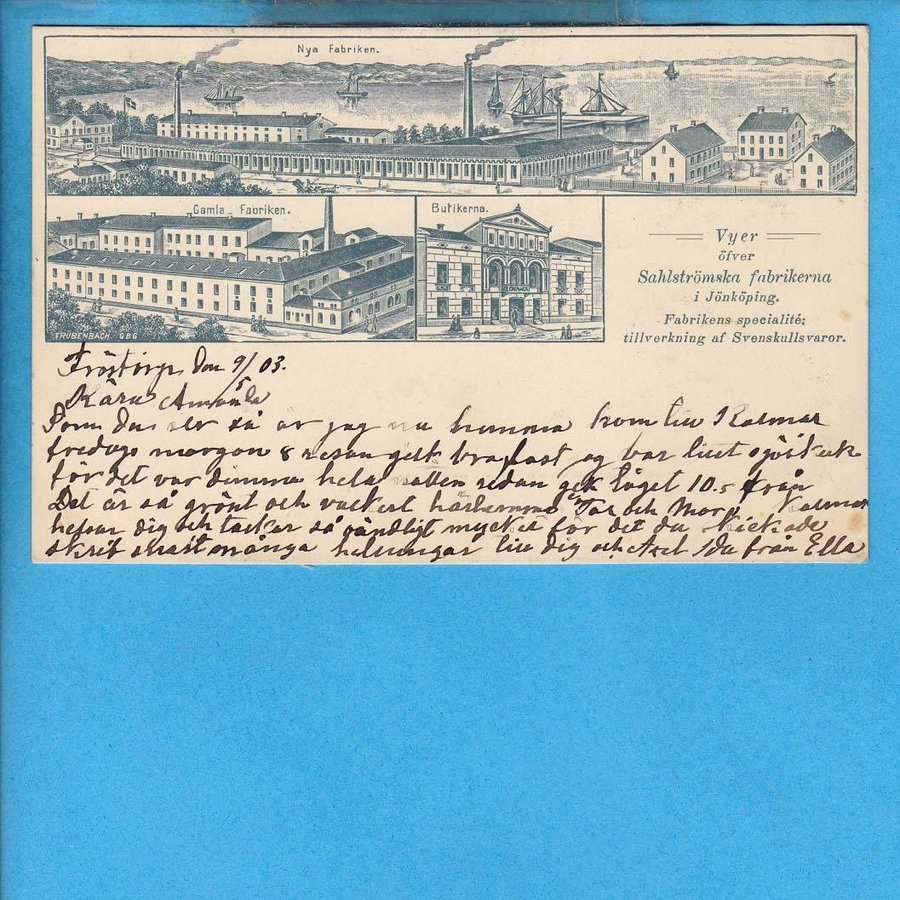 Nya Fabriken.
Gamla Fabriken.
Butikerna.
TRUBENBACH. GBG
Vyer
öfver
Sahlströmska fabrikerna
i Jönköping.
Fabrikens specialité;
tillverkning af Svenskullsvaror.
den 9/5 03.
Kära
Som du ser så är jag nu hemma kom till Kalmar
fredags morgon 8 resan gick bra fast og var litet sjösjuk
för det var dimma hela natten sedan gick tåget 10.5 från
Det är så grönt och vackert härhemma Far och Mor Kalmar
helsar dig och tackar så mycket för det du skickade
skrif snart många helsningar till dig och Axel från Ella